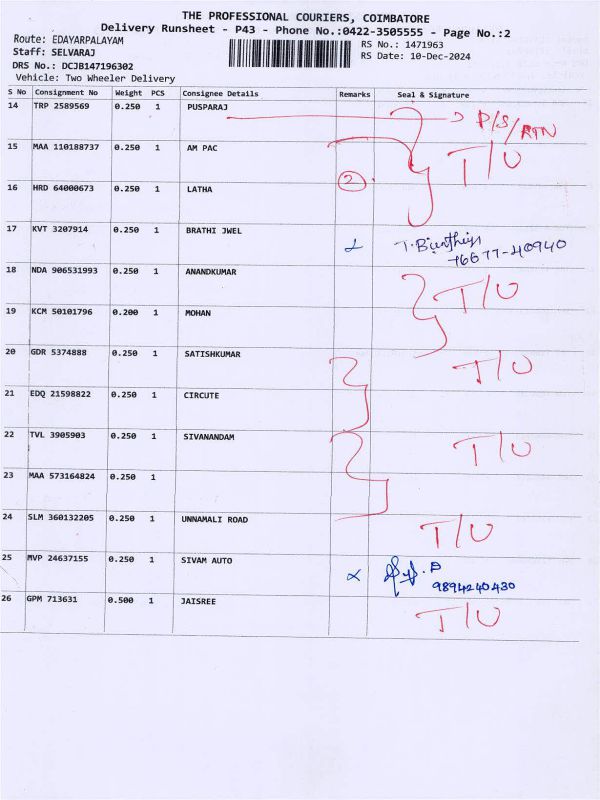 THE PROFESSIONAL COURIERS, COIMBATORE
Delivery Runsheet - P43 - Phone No.:0422-3505555 - Page No.:2
Route: EDAYARPALAYAM
Staff: SELVARAJ
RS No.: 1471963
RS Date: 10-Dec-2024
DRS No.: DCJB147196302
Vehicle: Two Wheeler Delivery
S No Consignment No Weight PCS Consignee Details Remarks Seal & Signature
14 TRP 2589569 0.250 1 PUSPARAJ P/S/RTN
15 MAA 110188737 0.250 1 AM PAC T/U
16 HRD 64000673 0.250 1 LATHA 2
17 KVT 3207914 0.250 1 BRATHI JWEL 76677-40940
18 NDA 906531993 0.250 1 ANANDKUMAR T/U
19 KCM 50101796 0.200 1 MOHAN
20 GDR 5374888 0.250 1 SATISHKUMAR T/U
21 EDQ 21598822 0.250 1 CIRCUTE
22 TVL 3905903 0.250 1 SIVANANDAM T/U
23 MAA 573164824 0.250 1
24 SLM 360132205 0.250 1 UNNAMALI ROAD T/U
25 MVP 24637155 0.250 1 SIVAM AUTO 9894240430
26 GPM 713631 0.500 1 JAISREE T/U